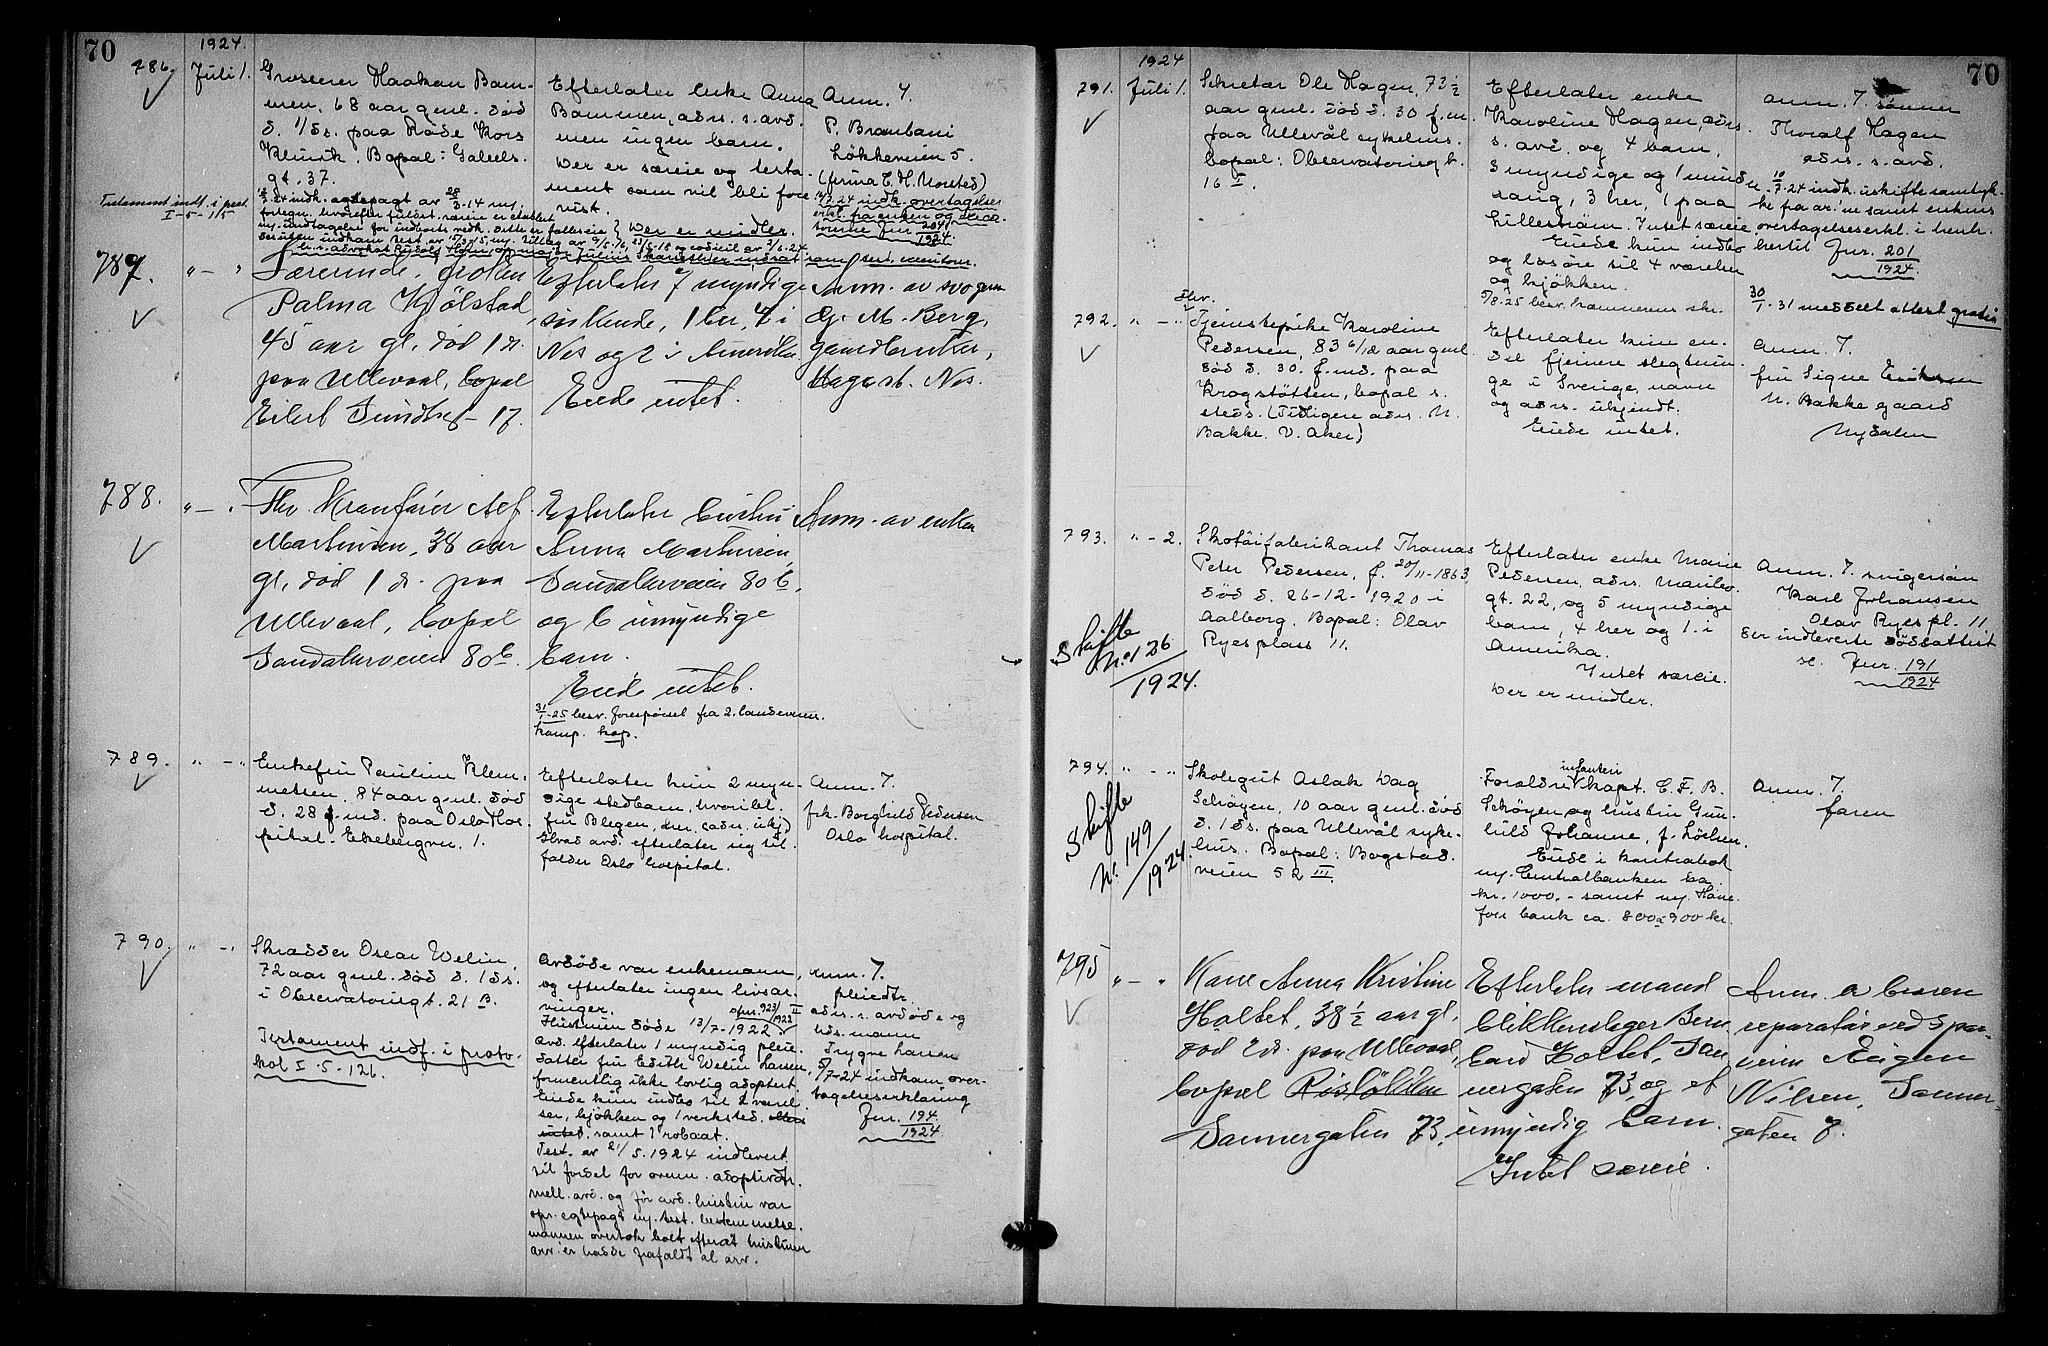 70
1924.
786.
Juli 1.
Grosserer Haakon Bam-
men, 68 aar gml. død
d. 1/ds. paa Røde Kors
Klinik. Bopæl: Gabels.
gt. 37.
Testament indf. i prot.
I-5-115
Efterlater enke Anna
Bammen, adrs. s. avd.
men ingen barn.
Der er særeie og testa-
ment som vil bli fore-
vist.
Der er midler.
Anm. 7.
P. Brambani
Løkkeveien 5.
(firma C. H. Norsted)
indk. overtagelses
erkl. fra enken og
Jnr. 204/1924.
787.
" — "
Særeinde, frøken
Palma Kjølstad,
45 aar gl. død 1 ds.
paa Ullevaal, bopæl
Eilert Sundtsgt. 17.
Efterlater 7 myndige
søskende, 1 her, 4 i
Nes og 2 i Amerika.
Eiede intet.
Anm. av svogeren
M. Berg,
gaardbruker,
Nes.
788.
" — "
Fhv. Kranfører Alf
Martinsen, 38 aar
gl. død 1 ds. paa
Ullevaal, bopæl
Sandakerveien 80b.
Efterlater hustru
Anna Martinsen,
Sandakerveien 80b,
og 6 umyndige
barn.
Eiede intet.
31/1-25 besv. forespørsel fra 2. landsverns
komp. kop.
Anm. av enken
789.
" — "
Enkefru Pauline Klem-
metsen, 84 aar gml. død
d. 28 f. md. paa Oslo Hos-
pital. Ekebergvn. 1.
Efterlater kun 2 myn-
dige stedbarn, hvoribl.
fru Blegen, her. (adrs. ukj.)
Hvad avd. efterlater sig til-
falder Oslo hospital.
Anm. 7.
frk. Borghild Pedersen
Oslo hospital.
790.
" — "
Skrædder Oscar Welin,
72 aar gml. død d. 1 ds.
i Observatoriegt. 21 B.
Testament indf. i proto-
kol I-5-126.
Avdøde var enkemann,
og efterlater ingen livsar-
vinger.
Hustruen døde 13/7-1922.
Avd. efterlater 1 myndig pleie-
datter fru Edith Welin Larsen,
formentlig ikke lovlig adoptert.
Eiede kun indbo til 2 værel-
ser, kjøkken og 1 verksted, ellers
intet. samt 1 robaat.
Test. av 21/5.1924 indlevert
til fordel for ovenn. adoptivdtr.
mell. avd. og før avd. hustru var
opr. egtepagt m. test. bestemmelse.
mannen overtok boet efterat hustruens
arv.er hadde frafaldt al arv.
Anm. 7.
pleiedtr.
adrs. s. avdøde og
hds. mann
Trygve Larsen
5/7-24 indkom over-
tagelseserklæring
Jnr. 194/1924.
70
1924
791.
Juli 1.
Sekretær Ole Hagen, 73 1/2
aar gml. død d. 30 f.m.
paa Ullevål sykehus.
bopæl: Observatoriegt.
16 I.
Efterlater enke
Karoline Hagen, adrs.
s. avd. og 4 barn,
3 myndige og 1 minder-
aarig, 3 her, 1 paa
Lillestrøm. Intet særeie
Eiede kun indbo
og løsøre til 4 værelser
og kjøkken.
5/8-25 besv. kemnerens skr.
Anm. 7. sønnen
Thoralf Hagen
adrs. s. avd.
10/7-24 indk. uskiftesamtyk-
ke fra ar.'ne samt enkens
overtagelseserkl. i henh.
hertil Jnr. 201/1924.
30/1-31 meddelt attest gratis
792.
" — "
Fhv.
Tjenestepike Karoline
Pedersen, 83 6/12 aar gml.
død d. 30. f. md. paa
Krogstøtten, bopæl s.
steds. (Tidligere adrs. N.
Bakke. V. Aker)
Efterlater kun en
del fjernere slegtnin-
ge i Sverige, navn
og adrs. ukjendt.
Eiede intet.
Anm. 7.
fru Signe Eriksen
N. Bakke gaard
Nydalen
793.
" — 2.
Skifte
No. 126
/1924.
Skotøifabrikant Thomas
Peter Pedersen, f. 20/11-1863,
død d. 26-12-1920 i
Aalborg. Bopæl: Olav
Ryesplass 11.
Efterlater enke Marie
Pedersen, adrs. Maribo-
gt. 22, og 5 myndige
barn, 4 her og 1 i
Amerika.
Intet særeie.
Der er midler.
Anm. 7. svigersøn
Karl Johansen
Olav Ryes pl. 11
der indleverte dødsattest
se Jnr. 191/1924
794.
" — "
Skifte
No. 149
/1924.
Skolegut Aslak Dag
Schøyen, 10 aar gml. død
d. 1 ds. paa Ullevål syke-
hus. Bopæl: Bogstad-
veien 52 III.
Forældre infanteri
kapt. C. F. B.
Schøyen og hustru Gun-
hild Johanne, f. Løchen.
Eiede i kontrabok
m. Centralbanken ca
kr. 1000.- samt m. Høne-
foss bank ca. 800 à 900 kr.
Anm. 7.
faren
795
" — "
Kone Anna Kristine
Holtet, 38 1/2 aar gl.
død 2 ds. paa Ullevaal,
bopæl
Sannergaten 73.
Efterlater mand
blikkenslager Bern-
hard Holtet, San-
nergaten 73, og et
umyndig barn.
Intet særeie.
Anm. a broren
reparatør ved Spor-
veien Eugen
Nilsen, Sanner-
gaten 7.